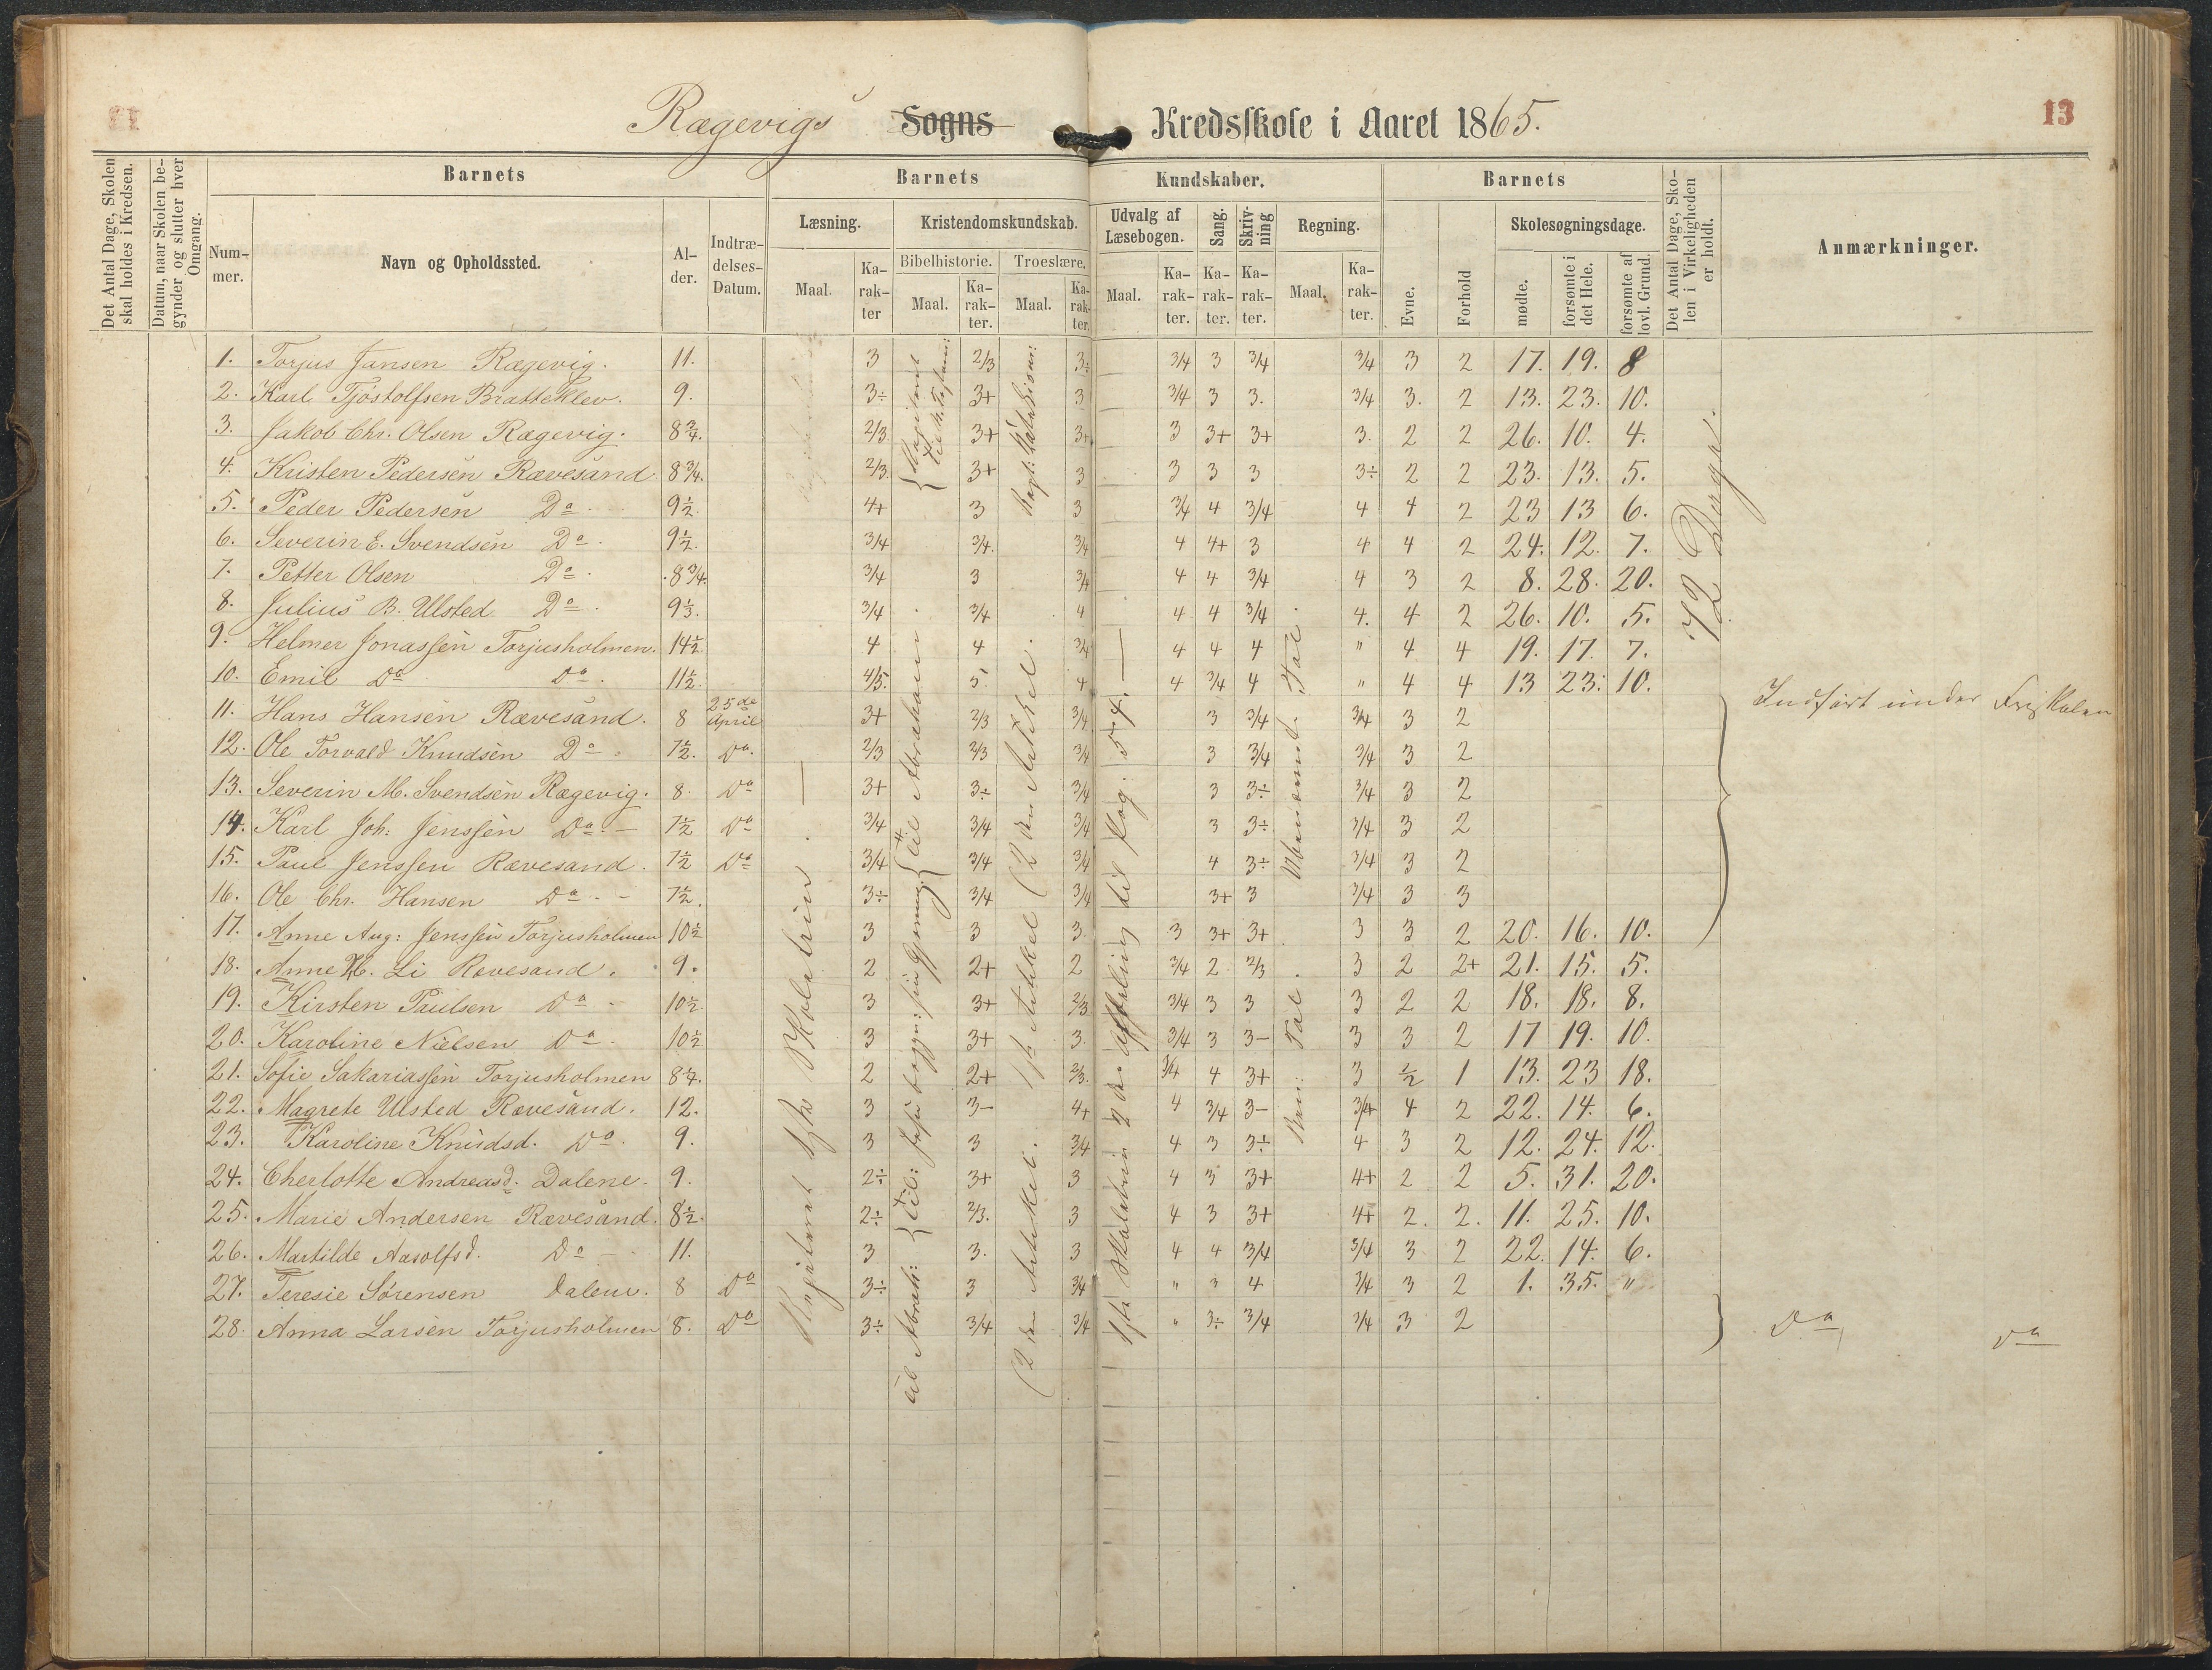 Rægevigs Sogns Kredsskole i Aaret 1865.
13
Det Antal Dage, Skolen skal holdes i Kredsen.
Datum, naar Skolen begynder og slutter hver Omgang.
Barnets
Barnets
Kundskaber.
Barnets
Det Antal Dage, Skolen i Virkeligheden er holdt.
Anmærkninger.
Nummer.
Navn og Opholdssted.
Alder.
Indtrædelses-Datum.
Læsning.
Kristendomskundskab.
Udvalg af Læsebogen.
Sang.
Skrivning
Regning.
Evne.
Forhold
Skolesøgningsdage.
Bibelhistorie.
Troeslære.
Maal.
Karakter
Maal.
Karakter.
Maal.
Karakter.
Maal.
Karakter.
Karakter.
Karakter.
Maal.
Karakter.
mødte.
forsømte i det Hele.
forsømte af lovl. Grund.
1. Torjus Jansen Rægevig. 11. 3 2/3 3÷ 3/4 3 3/4 3/4 3 2 17. 19. 8
2. Karl Tjøstolfsen Bratteklev. 9. 3÷ 3+ 3 3/4 3 3. 3/4 3. 2 13. 23. 10.
3. Jakob Chr. Olsen Rægevig. 8 3/4. 2/3 3+ 3+ 3 3+ 3+ 3. 2 2 26. 10. 4.
4. Kristen Pedersen Rævesand 8 3/4. 2/3. 3+ 3 3 3 3 3÷ 2 2 23. 13. 5.
5. Peder Pedersen Do. 9 1/2. 4+ 3 3 3/4 4 3/4 4 4 2 23 13 6.
6. Severin E. Svendsen Do. 9 1/2. 3/4 3/4. 3/4 4 4+ 3 4 4 2 24. 12. 7.
7. Petter Olsen Do. 8 3/4. 3/4 3 3/4 4 4 3/4 4 3 2 8. 28. 20.
8. Julius B. Ulsted Do. 9 1/3. 3/4 3/4 4 4 4 3/4 4. 4 2 26. 10. 5.
9. Helmer Jonassen Torjusholmen. 14 1/2. 4 4 3/4 4 4 4 " 4 4 19. 17. 7.
10. Emil Do Do. 11 1/2. 4/5. 5. 4 4 3/4 4 " 4 4 13 23. 10.
11. Hans Hansen Rævesand. 8 25de April 3+ 2/3 3/4 3 3/4 3/4 3 2
12. Ole Torvald Knudsen Do. 7 1/2. Do. 2/3 2/3 3/4 3 3/4 3/4 3 2
13. Severin M. Svendsen Rægevig. 8. Do 3+ 3÷ 3/4 3 3÷ 3/4 3 2
14. Karl Joh: Jenssen Do. 7 1/2 Do 3/4 3/4 3/4 3 3÷ 3/4 3 2
15. Paul Jenssen Rævesand. 7 1/2 Do 3/4 3/4 3/4 4 3÷ 3/4 3 2
16. Ole Chr. Hansen Do. 7 1/2. 3÷ 3/4 3/4 3+ 3 3/4 3 3
17. Anne Aug: Jenssen Torjusholmen 10 1/2 3 3 3. 3 3+ 3+ 3 3 2 20. 16. 10.
18. Anne H. Li Rævesand. 9. 2 2+ 2 3/4 2 2/3 3 2 2+ 21. 15. 5.
19. Kirsten Paulsen Do 10 1/2 3 3+ 2/3 3/4 3 3 3 2 2 18. 18. 8.
20. Karoline Nielsen Do. 10 1/2 3 3+ 3. 3/4 3 3- 3 3 2 17 19. 10.
21. Sofie Sakariassen Torjusholmen 8 1/4. 2 2+ 2/3. 3/4 4 3+ 3 1/2 1 13. 23 18.
22. Magrete Ulsted Rævesand. 12. 3 3- 4+ 4 3/4 3- 3/4 4 2 22. 14. 6.
23. Karoline Knudsd. Do. 9. 3 3 3/4 4 3 3÷ 4 3 2 12. 24. 12.
24. Cherlotte Andreasd. Dalene. 9. 2÷ 3+ 3 4 3 3+ 4+ 2 2 5. 31. 20.
25. Marie Andersen Rævesand. 8 1/2. 2÷ 2/3. 3 4 3 3+ 4+ 2. 2. 11. 25. 10.
26. Martilde Aasolfsd. Do 11. 3 3. 3 4 4 3/4 3/4 3 2 22. 14. 6.
27. Teresie Sørensen Dalene. 8 Do 3÷ 3 3/4 " 3 4 3/4 3 2 1. 35. "
28. Anna Larsen Torjusholmen 8. Do 3÷ 3/4 3/4 " 3÷ 3/4 3/4 3 2
72 Dage.
Indført under Friskolen
Do Do
til Abrah:
2den Artikel.
1ste Artikel (2den Artikel.
Ubenævnte Tal.
Ben: Tal.